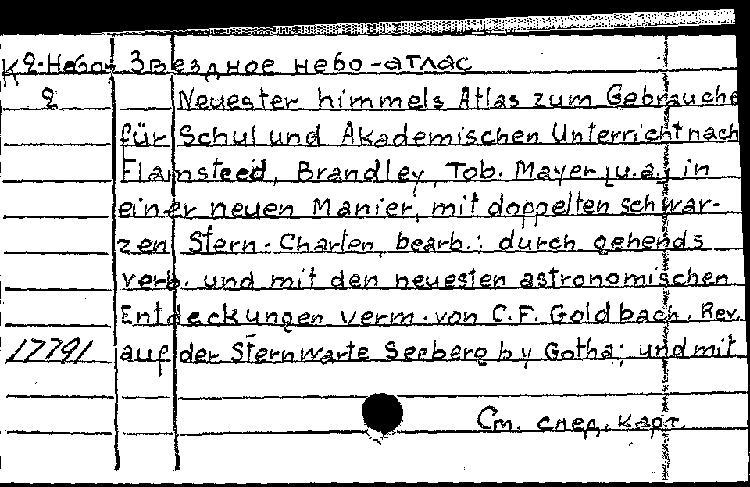 К 2-Небо Звездное небо-атлас
2 Neuester himmels Atlas zum Gebrauche
für Schul und Akademischen Unterricht nach
Flamsteed, Brandley, Tob. Mayer [u.a.] in
einer neuen Manier, mit doppelten schwar-
zen Stern-Charten, bearb.; durch gehends
verb. und mit den neuesten astronomischen
Entdeckungen verm. von C.F. Goldbach. Rev.
17791 auf der Sternwarte Seeberg by Gotha; und mit
См. след. карт.